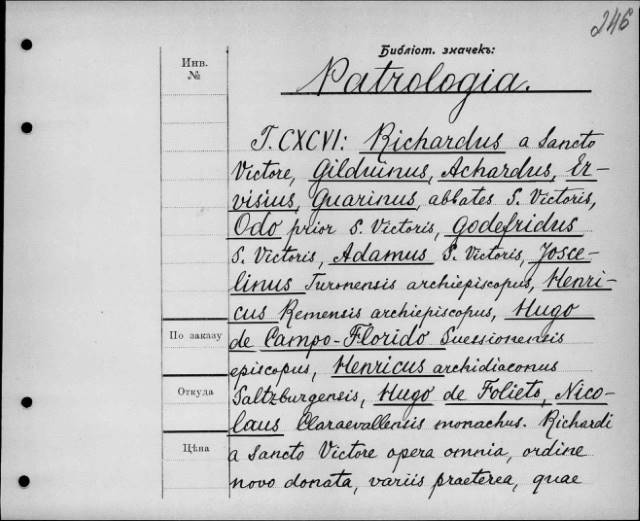 246
Библіот. значекъ:
Инв.
№
Patrologia.
T. CXCVI: Richardus a Sancto
Victore, Gilduinus, Achardus, Er-
visius, Guarinus, abbates S. Victoris,
Odo prior S. Victoris, Godefridus
S. Victoris, Adamus S. Victoris, Josce-
linus Turonensis archiepiscopus, Henri-
cus Remensis archiepiscopus, Hugo
По заказу
de Campo-Florido Suessionensis
episcopus, Henricus archidiaconus
Откуда
Saltzburgensis, Hugo de Folieto, Nico-
laus Claraevallensis monachus. Richardi
Цѣна
a Sancto Victore opera omnia, ordine
novo donata, variis praeterea, quae